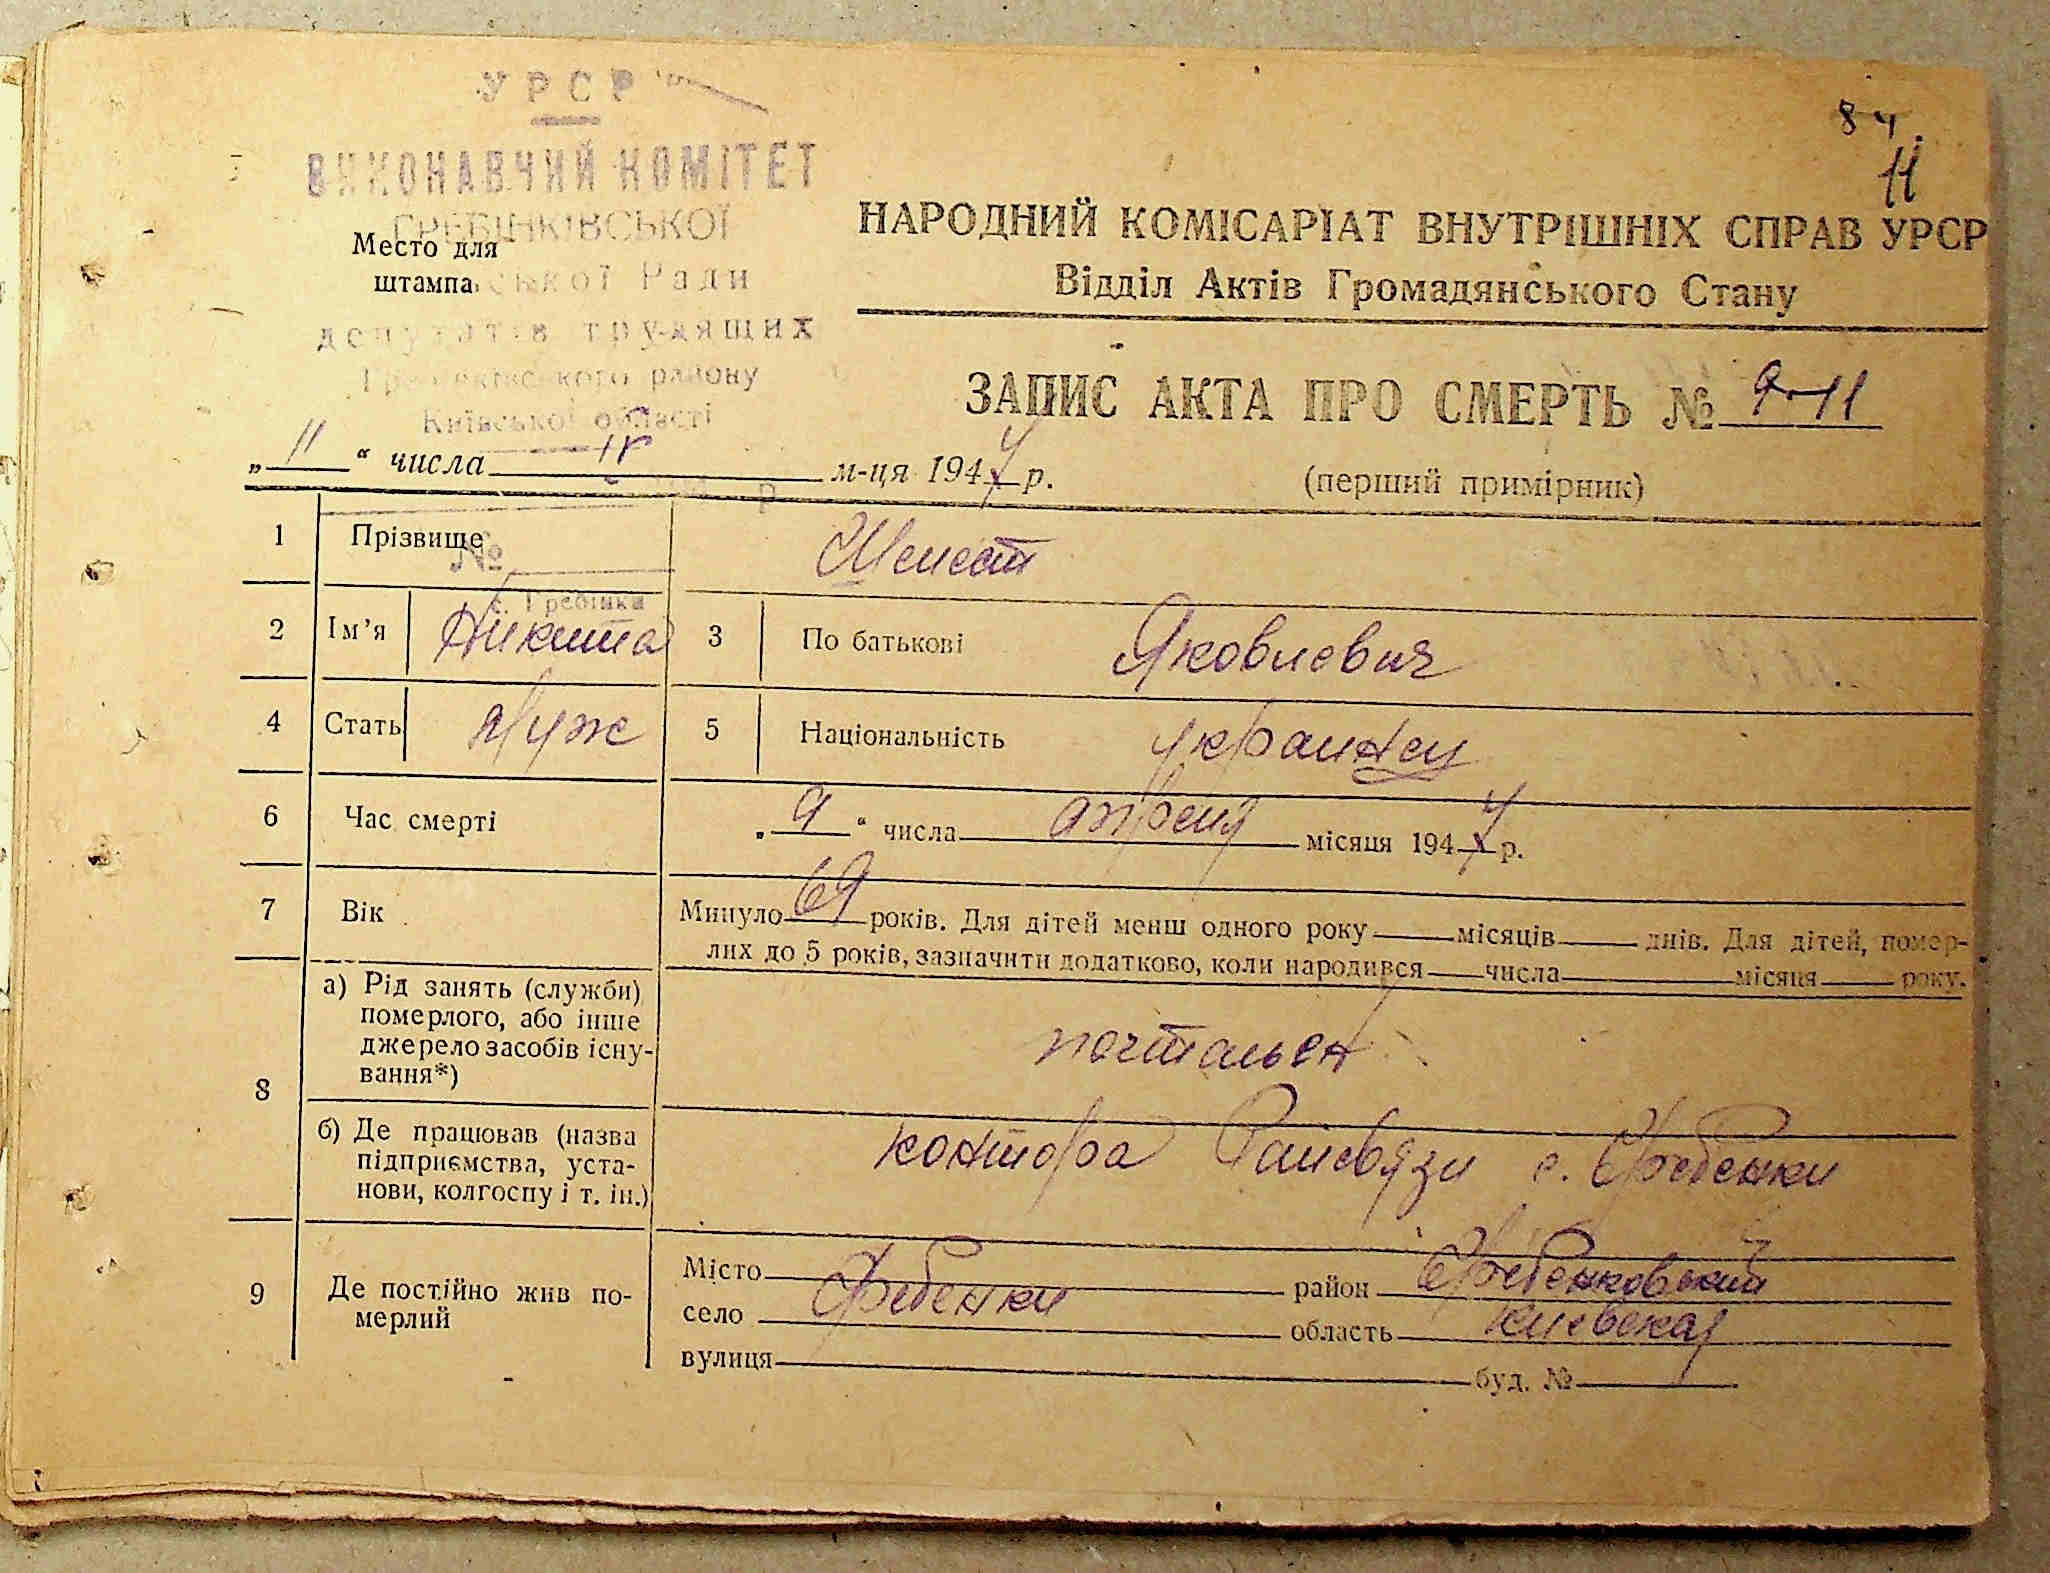 УРСР
ВИКОНАВЧИЙ КОМІТЕТ
ГРЕБІНКІВСЬКОЇ
Ради
депутатів трудящих
Гребінківського району
Київської області
84
11
Место для
штампа
НАРОДНИЙ КОМІСАРІАТ ВНУТРІШНІХ СПРАВ УРСР
Відділ Актів Громадянського Стану
ЗАПИС АКТА ПРО СМЕРТЬ № 9-11
„11“ числа IV м-ця 1947 р.
(перший примірник)
1 Прізвище Шелест
№
с. Гребінки
2 Ім’я Никита 3 По батькові Яковлевич
4 Стать Муж 5 Національність украинец
6 Час смерті „9“ числа апреля місяця 1947 р.
7 Вік Минуло 69 років. Для дітей менш одного року місяців днів. Для дітей, помер-
лих до 5 років, зазначити додатково, коли народився числа місяця року.
8 а) Рід занять (служби)
померлого, або інше
джерело засобів існу-
вання*)
почтальен
б) Де працював (назва
підприємства, уста-
нови, колгоспу і т. ін.)
контора Райсвязи с. Гребенки
9 Де постійно жив по-
мерлий
Місто район Гребенковский
село Гребенки область Киевская
вулиця буд. №